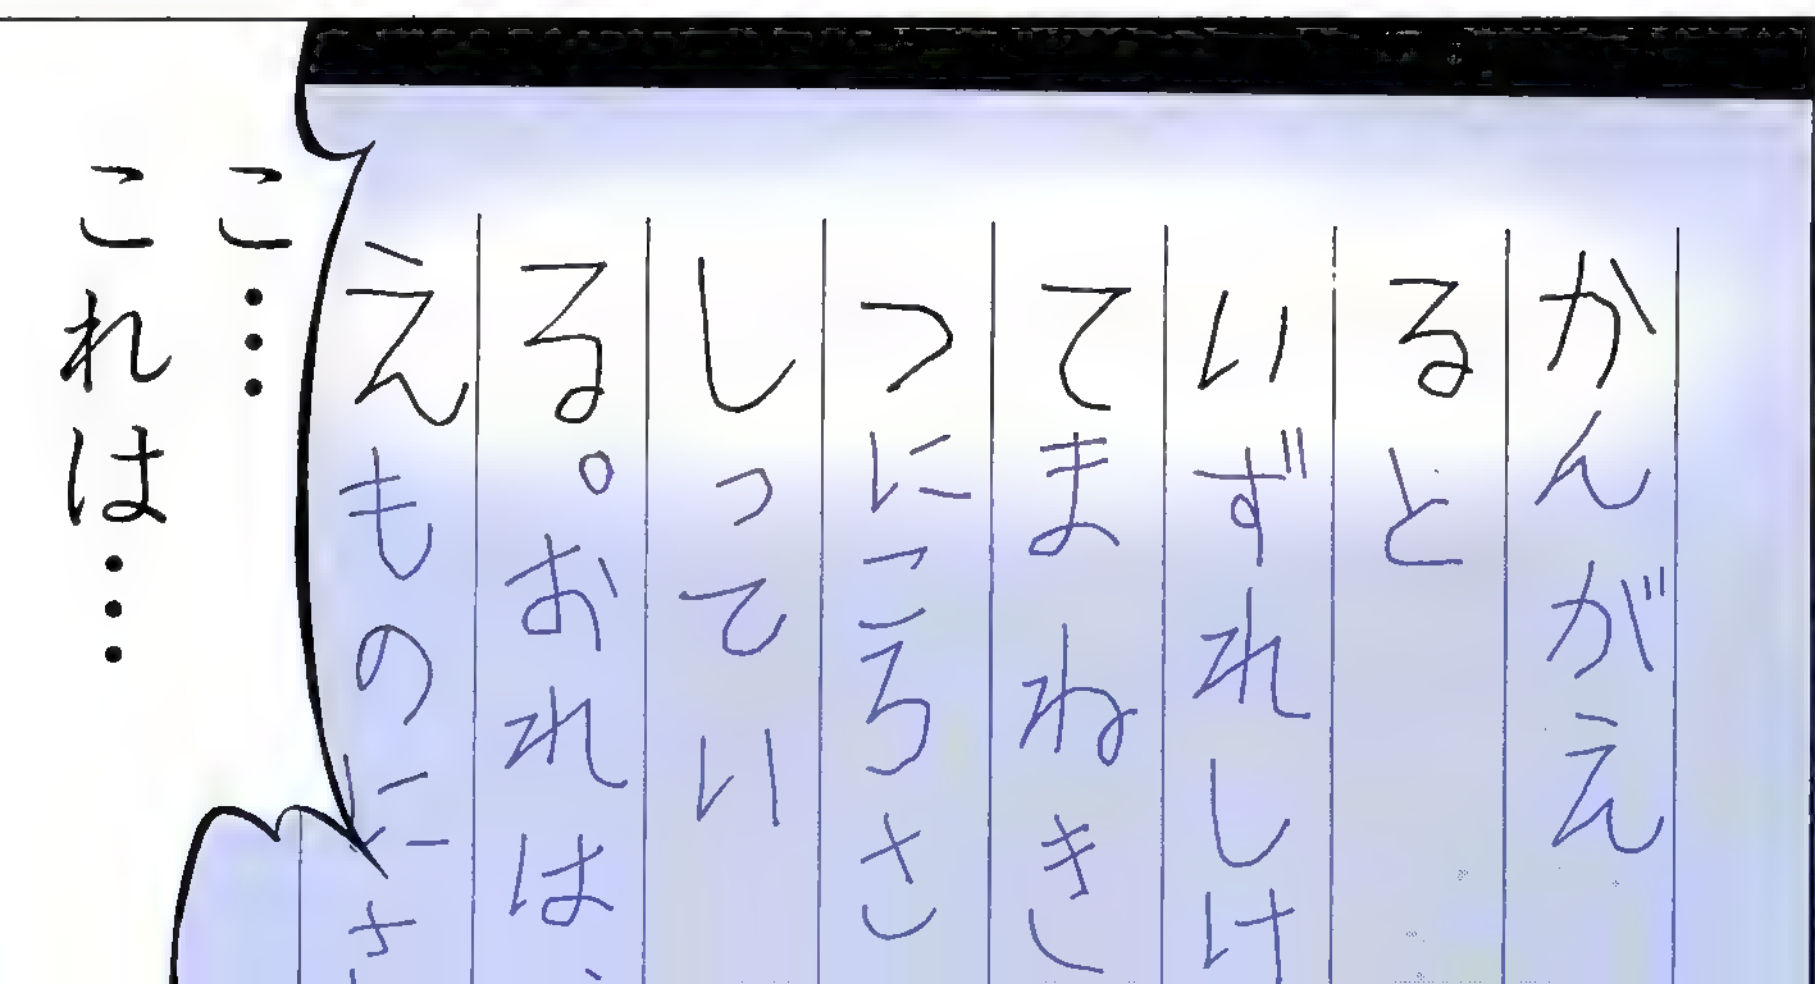 かんがえ
ると
いずれしけ
てまねき
つにころさ
しってい
る。おれは、
えものにさ
こ…
これは…